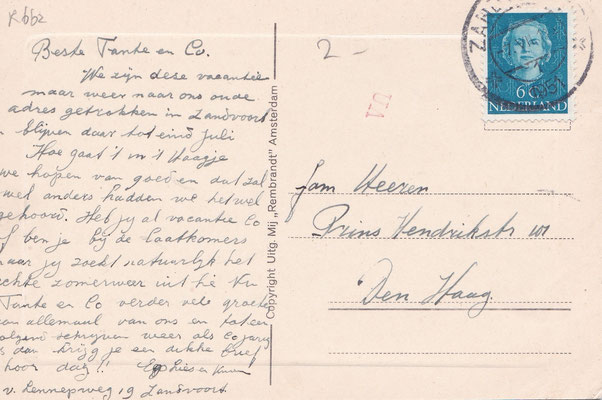 R662
2 -
Beste Tante en Co.
We zijn dese vacantie
maar weer naar ons oude
adres getrokken in Zandvoort
blijven daar tot eind Juli
Hoe gaat 't in 't Haagje
we hopen van goed en dat zal
wel anders hadden we het wel
gehoord. Heb jy al vacantie Co
of ben je by de laatkomers
maar jy zoekt natuurlijk het
echte zomerweer uit hè Nu
Tante en Co verder vele groeten
van allemaal van ons en tot een
volgend schrijven weer als Co jarig
is dan krijg je een dikke brief
hoor dag!!
v. Lennepweg 19 Zandvoort
Copyright Uitg. Mij „Rembrandt" Amsterdam
ZAN
1951
6
NEDERLAND
Fam Heeren
Prins Hendrikstr 101
Den Haag